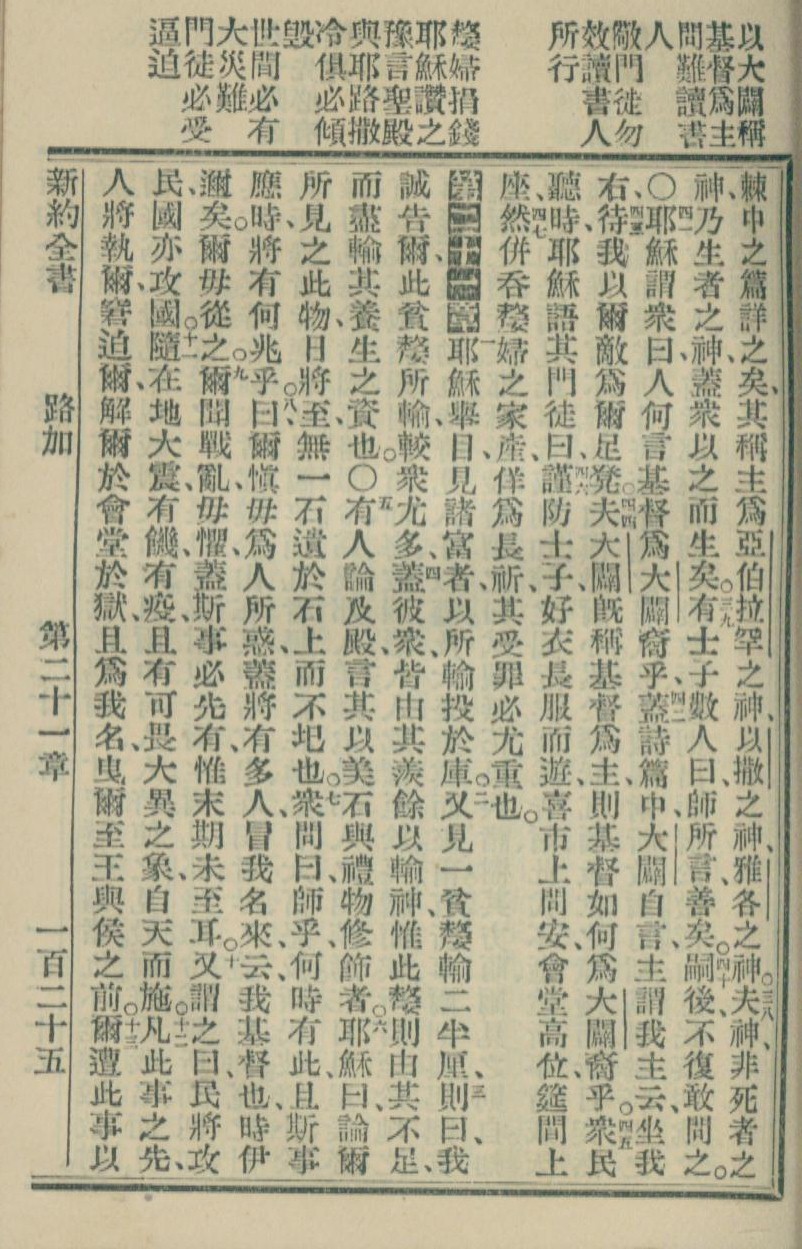 以大闢稱
基督爲主
問難讀書
人
儆門徒勿
效讀書人
所行
嫠婦捐錢
耶穌讚之
豫言聖殿
與耶路撒
冷俱必傾
毀
世間必有
大災難
門徒必受
逼迫
棘中之篇詳之矣、其稱主爲亞伯拉罕之神、以撒之神、雅各之神。三八夫神非死者之
神、乃生者之神、蓋衆以之而生矣。三九有士子數人曰、師所言善矣。四十嗣後不復敢問之。
○四一耶穌謂衆曰、人何言基督爲大闢裔乎、四二蓋詩篇中、大闢自言、主謂我主云、坐我
右、四三待我以爾敵爲爾足凳。四四夫大闢旣稱基督爲主、則基督如何爲大闢裔乎。四五衆民
聽時、耶穌語其門徒曰、四六謹防士子、好衣長服而遊、喜市上問安、會堂高位、筵間上
座、四七然併吞嫠婦之家產、佯爲長祈、其受罪必尤重也。
一耶穌舉目、見諸富者、以所輸投於庫。二又見一貧嫠、輸二半厘、三則曰、我
誠告爾、此貧嫠所輸、較衆尤多、四蓋彼衆、皆由其羨餘以輸神、惟此嫠則由其不足、
而盡輸其養生之資也。○五有人論及殿、言其以美石與禮物修飾者。六耶穌曰、論爾
所見之此物、日將至、無一石遺於石上而不圮也。七衆問曰、師乎、何時有此、且斯事
應時、將有何兆乎。八曰、爾愼毋爲人所惑、蓋將有多人、冒我名來、云、我基督也、時伊
邇矣。爾毋從之。九爾聞戰亂、毋懼、蓋斯事必先有、惟末期未至耳。十又謂之曰、民將攻
民、國亦攻國。十一隨在地大震、有饑、有疫、且有可畏大異之象、自天而施。十二凡此事之先、
人將執爾、窘迫爾、解爾於會堂、於獄、且爲我名、曳爾至王與侯之前。十三爾遭此事以
新約全書 路加 第二十一章 一百二十五